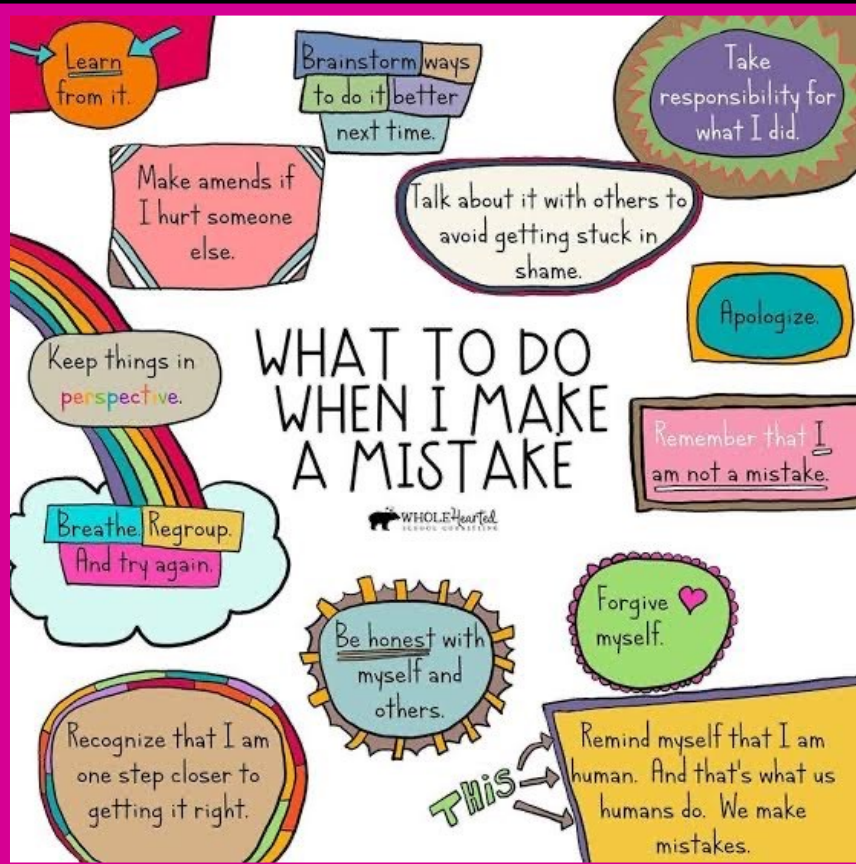 Learn
from it.
Brainstorm ways
to do it better
next time.
Take
responsibility for
what I did.
Make amends if
I hurt someone
else.
Talk about it with others to
avoid getting stuck in
shame.
Apologize.
Keep things in
perspective.
WHAT TO DO
WHEN I MAKE
A MISTAKE
Remember that I
am not a mistake.
WHOLEHearted
SCHOOL COUNSELING
Breathe. Regroup.
And try again.
Be honest with
myself and
others.
Forgive
myself.
Recognize that I am
one step closer to
getting it right.
THIS
Remind myself that I am
human. And that's what us
humans do. We make
mistakes.